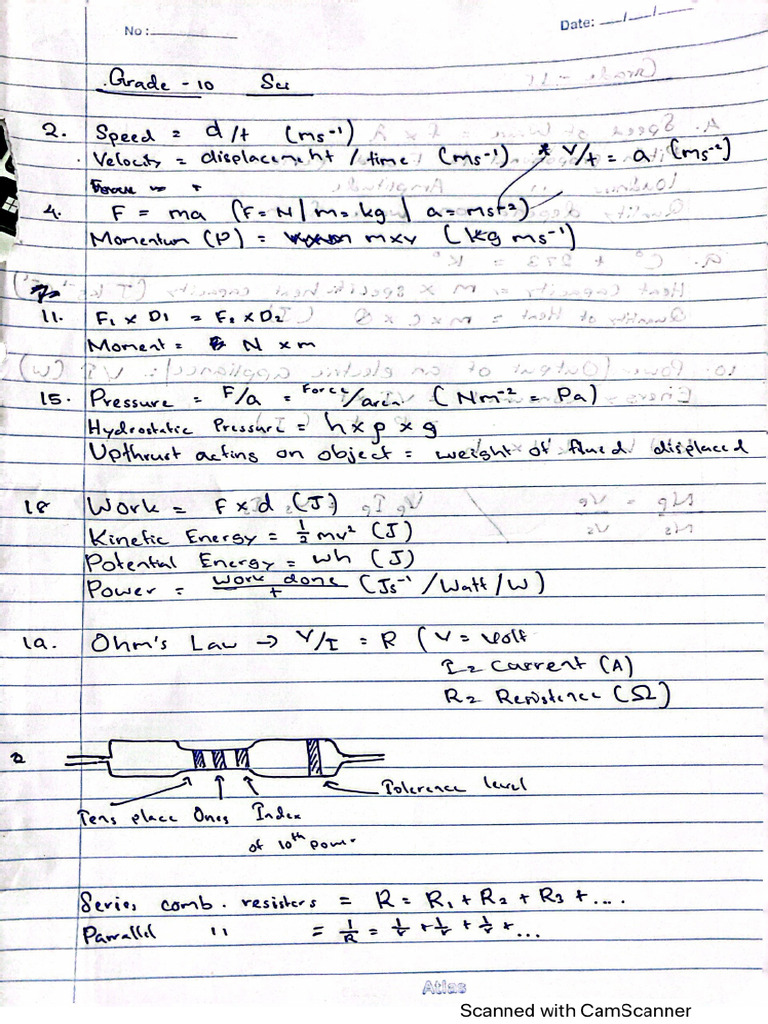 No :
Date: __/__/__
Grade - 10 Sci
2. Speed = d/t (ms⁻¹)
Velocity = displacement / time (ms⁻¹) * V/t = a (ms⁻²)
4. F = ma (F = N / m = kg / a = ms⁻²)
Momentum (P) = m×v (kg ms⁻¹)
11. F₁ × D₁ = F₂ × D₂
Moment = N × m
15. Pressure = F/a = Force/area (Nm⁻² = Pa)
Hydrostatic Pressure = h × ρ × g
Upthrust acting on object = weight of fluid displaced
18 Work = F × d (J)
Kinetic Energy = ½ mv² (J)
Potential Energy = wh (J)
Power = work done / t (Js⁻¹ / Watt / W)
19. Ohm's Law → V/I = R (V = Volt
I = Current (A)
R = Resistence (Ω)
2
Tolerence level
Tens place Ones Index
of 10th power
Series comb. resisters = R = R₁ + R₂ + R₃ + ....
Parrallel " = 1/R = 1/r + 1/r + 1/r + ...
Atlas
Scanned with CamScanner